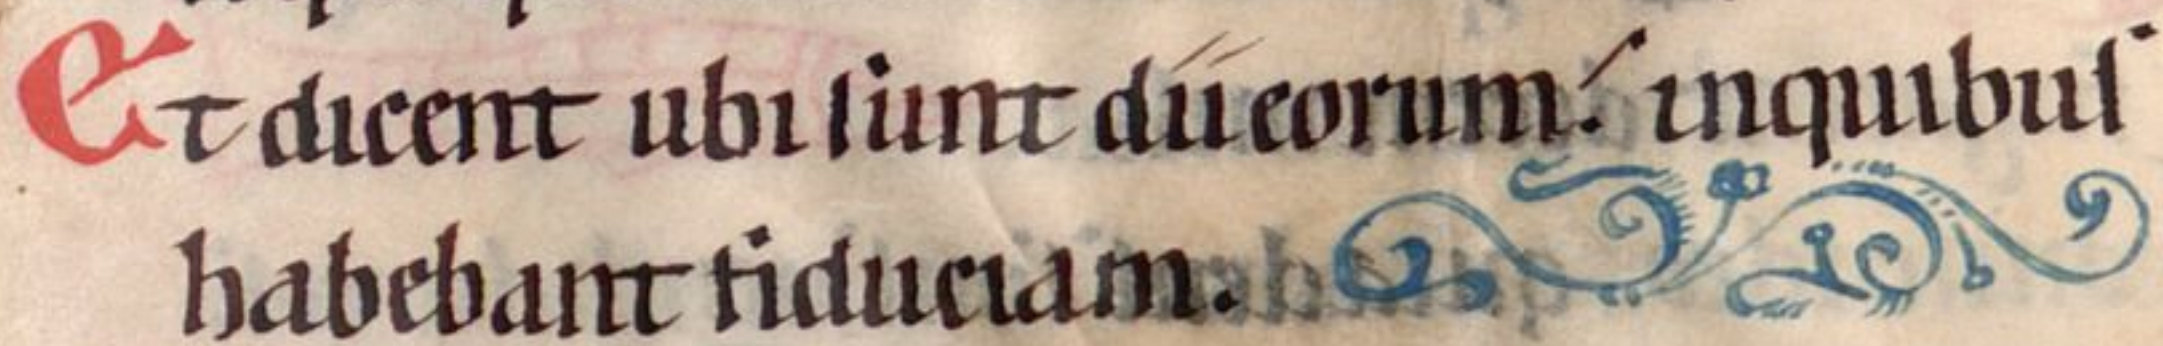 Et dicent ubi sunt dii eorum: inquibus
habebant fiduciam.